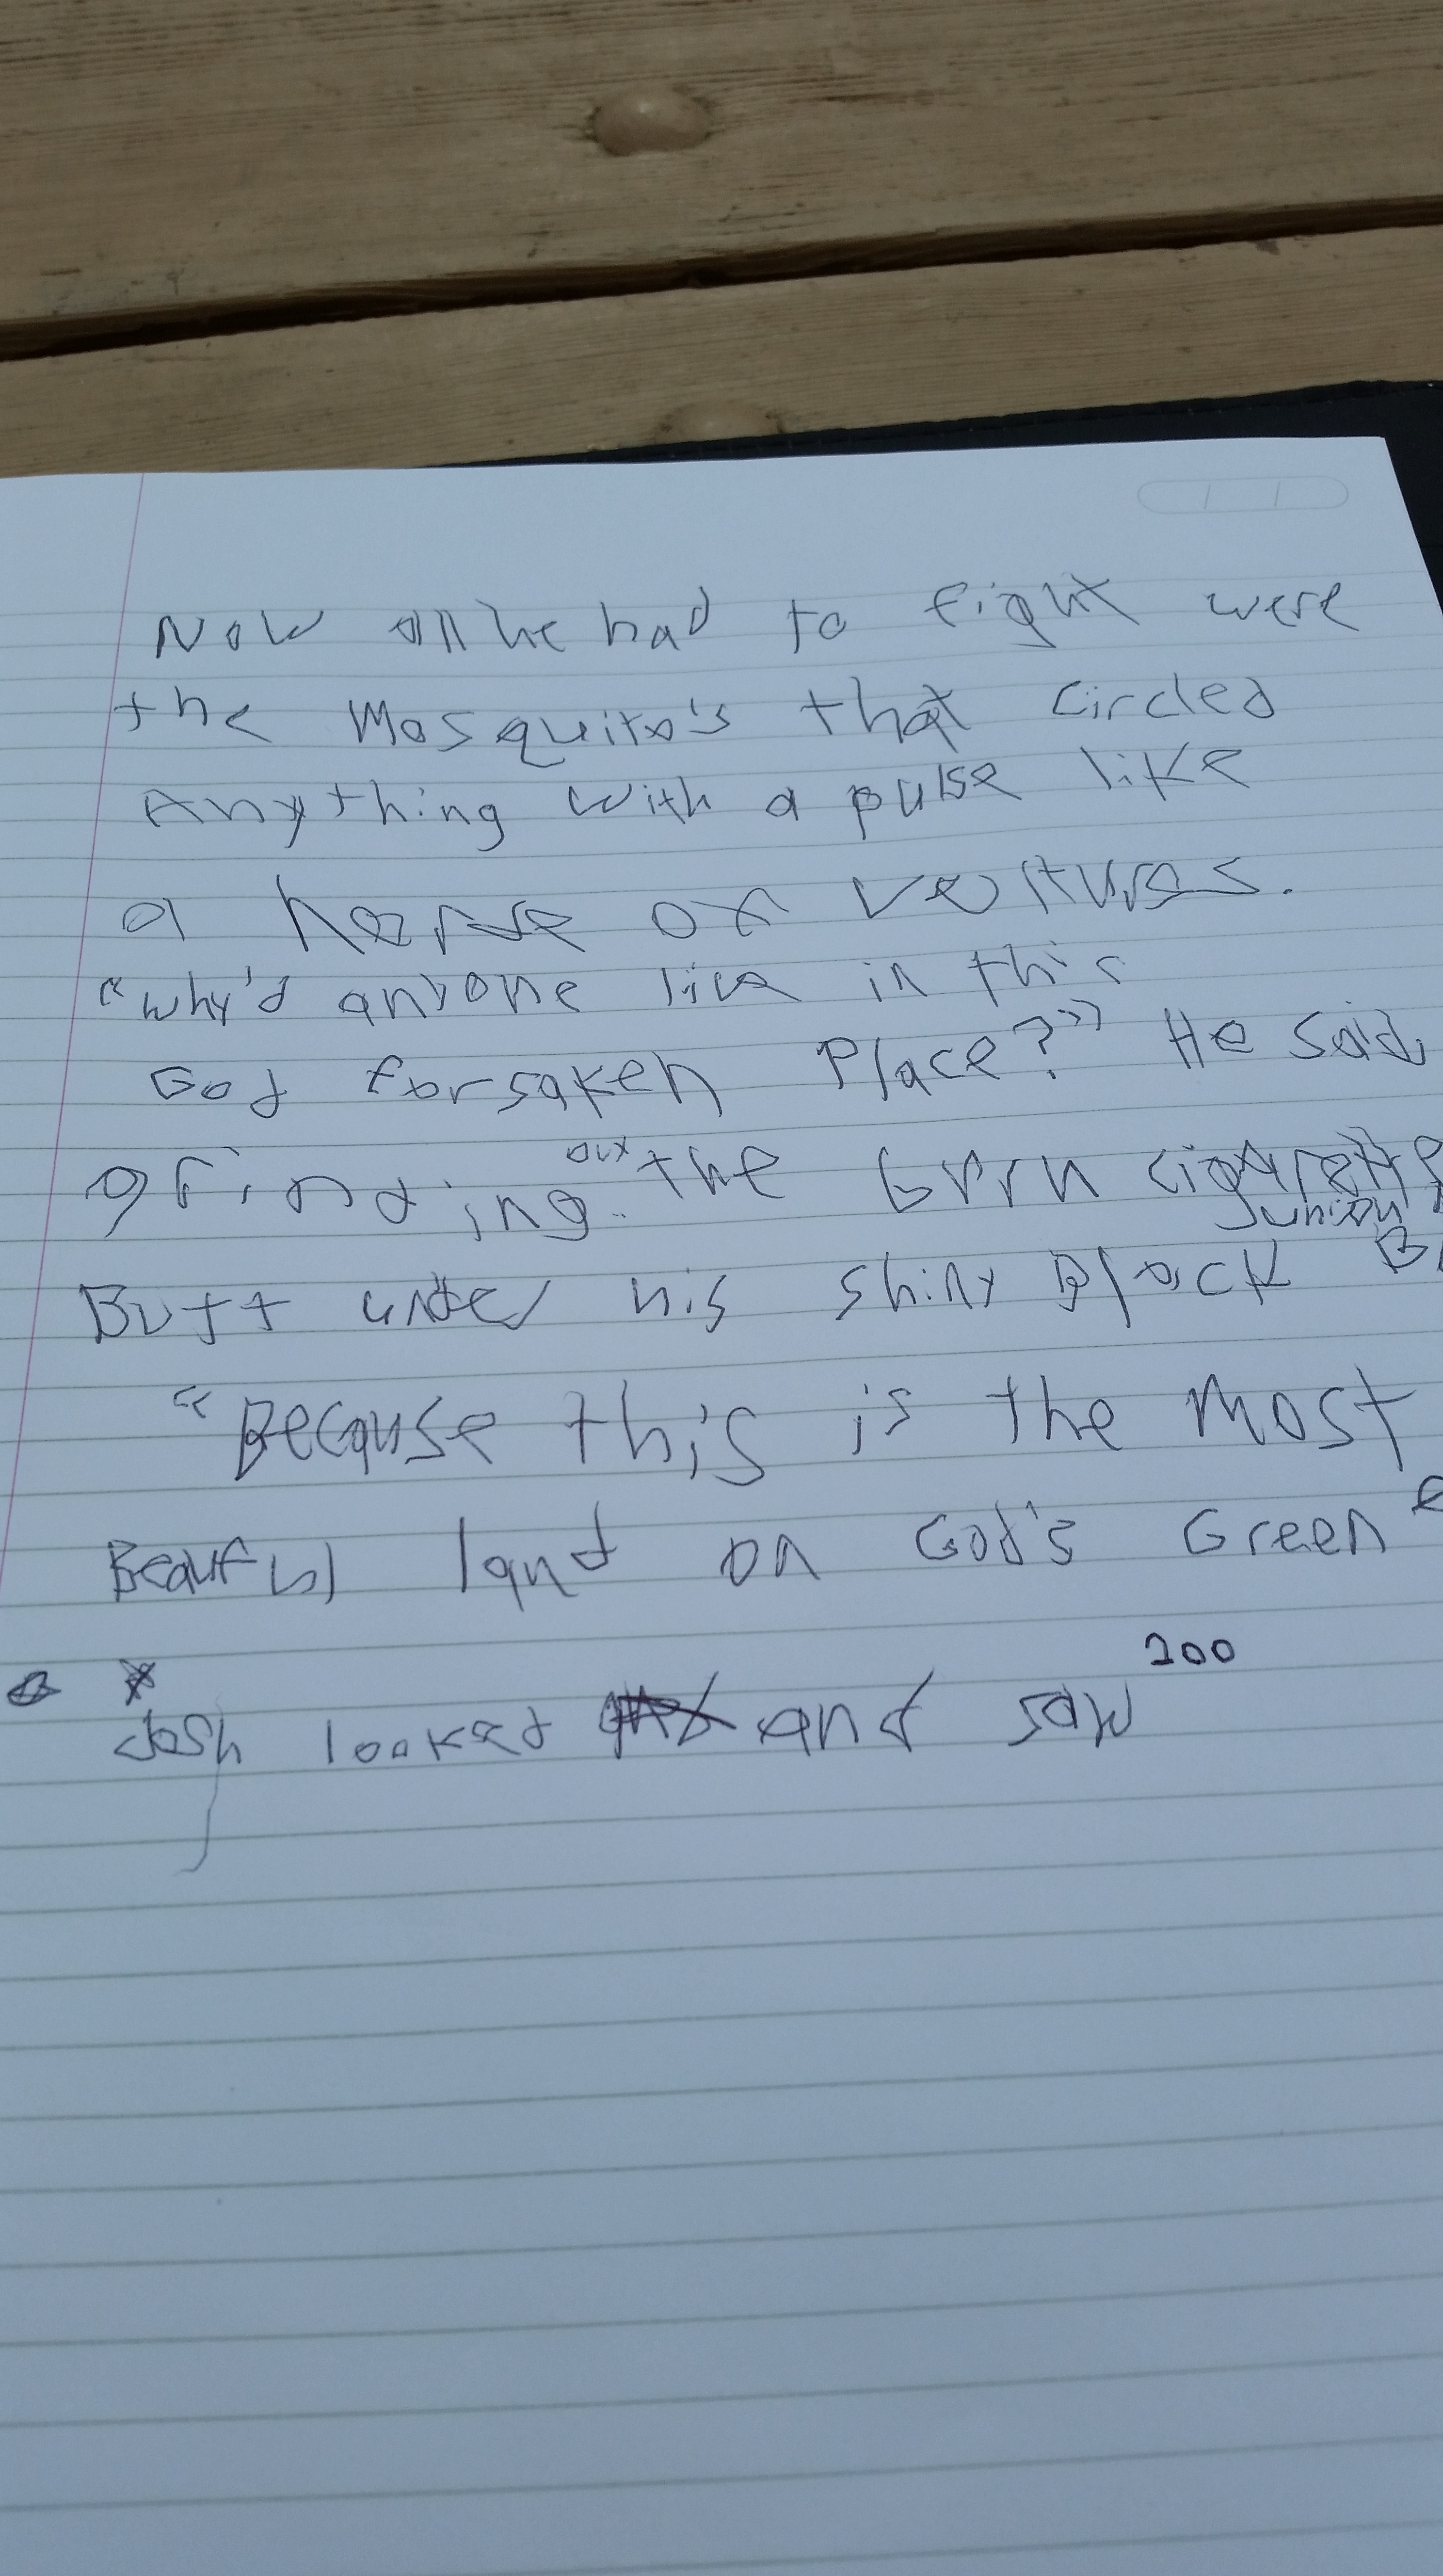 Now all he had to fight were
the Mosquito's that circled
Anything with a pulse like
a of
"why'd anyone live in this
God forsaken Place?" He said,
grinding out the cigarette
Butt under his shiny Black
"Because this is the most
land on God's Green
Josh looked and saw 200